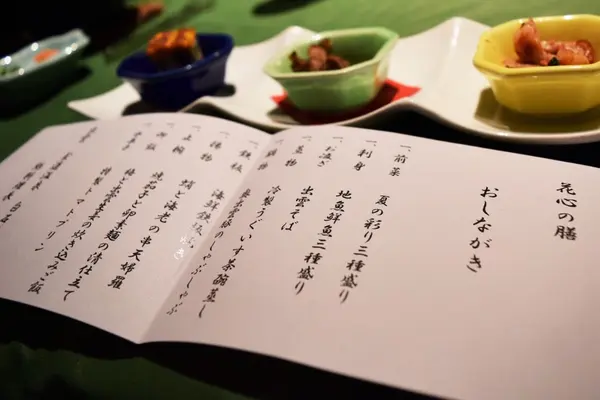 花心の膳
おしながき
一、前菜
夏の彩り三種盛り
一、刺身
地魚鮮魚三種盛り
一、お凌ぎ
出雲そば
一、蒸物
冷製うぐいす茶碗蒸し
一、鍋物
しゃぶしゃぶ
一、鉄板
海鮮鉄板
一、揚物
蛸と海老の串天婦羅
一、土鍋
焼茄子と卵素麺の清仕立て
一、御飯
の炊き込みご飯
一、甘味
特製トマトプリン